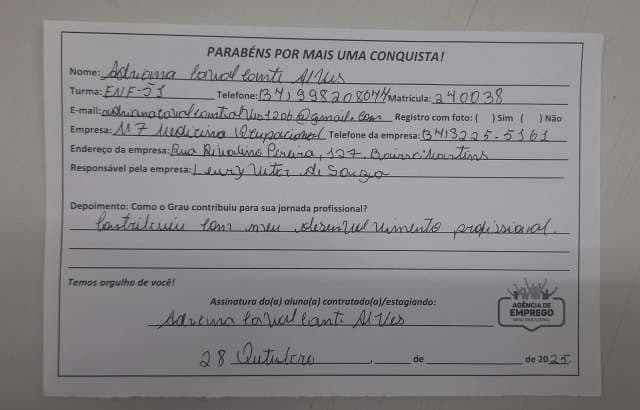 PARABÉNS POR MAIS UMA CONQUISTA!
Nome: Adriana Cavalcanti Alves
Turma: ENF-51 Telefone: (34) 998208074 Matrícula: 240038
E-mail: adrianacavalcantialves1206@gmail.com Registro com foto: ( ) Sim ( ) Não
Empresa: M7 Medicina Ocupacional Telefone da empresa: (34) 3225-5161
Endereço da empresa: Rua Rivalino Pereira, 127, Bairro: Martins
Responsável pela empresa: Vitor de Souza
Depoimento: Como o Grau contribuiu para sua jornada profissional?
Contribuiu com meu desenvolvimento profissional.
Temos orgulho de você!
Assinatura do(a) aluno(a) contratado(a)/estagiando:
Adriana Cavalcanti Alves
AGÊNCIA DE
EMPREGO
28 Outubro, de de 2025